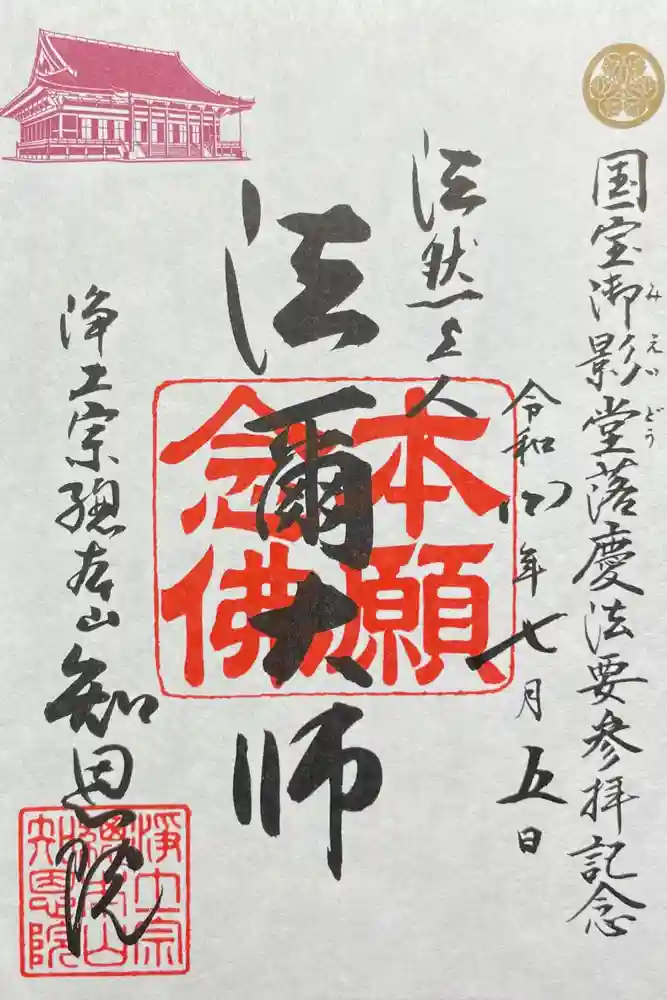 国宝御影堂落慶法要参拝記念
みえいどう
令和四年七月五日
法然上人
法爾大師
本願
念佛
浄土宗總本山知恩院
浄土宗
總本山
知恩院